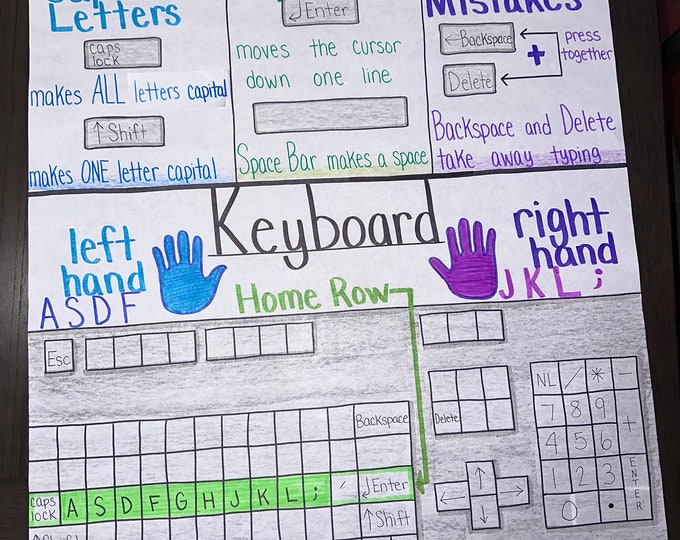 Letters
caps
lock
makes ALL letters capital
↑ Shift
makes ONE letter capital
↲ Enter
moves the cursor
down one line
Space Bar makes a space
Mistakes
← Backspace
+
Delete
press
together
Backspace and Delete
take away typing
Keyboard
left
hand
A S D F
right
hand
J K L ;
Home Row
Esc
Backspace
Delete
NL / * -
7 8 9
+
4 5 6
1 2 3
ENTER
0 .
← ↑ ↓ →
caps
lock
A S D F G H J K L ; ' ↲ Enter
↑ Shift